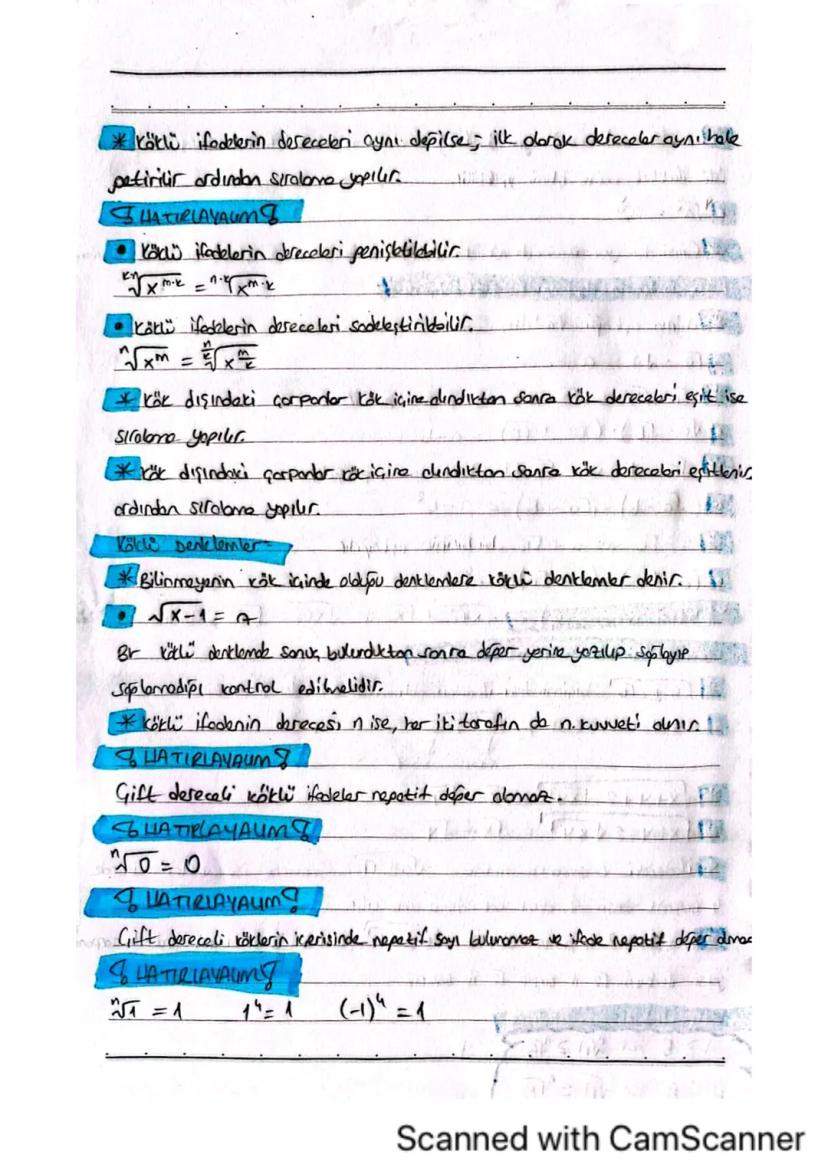 * Köklü ifadelerin dereceleri aynı değilse; ilk olarak dereceler aynı hale
getirilir ardından sıralama yapılır.
! HATIRLAYALIM !
• Köklü ifadelerin dereceleri genişletilebilir.
ᵏⁿ√x^(m·k) = ⁿ·ᵏ√x^(m·k)
• Köklü ifadelerin dereceleri sadeleştirilebilir.
ⁿ√x^m = ^(n/k)√x^(m/k)
* Kök dışındaki çarpanlar kök içine alındıktan sonra kök dereceleri eşit ise
sıralama yapılır.
* Kök dışındaki çarpanlar kök içine alındıktan sonra kök dereceleri eşitlenir
ardından sıralama yapılır.
Köklü Denklemler
* Bilinmeyenin kök içinde olduğu denklemlere köklü denklemler denir.
• √x-1 =
Bir köklü denklemde sonuç bulunduktan sonra değer yerine yazılıp sağlayıp
sağlamadığı kontrol edilmelidir.
* Köklü ifadenin derecesi n ise, her iki tarafın da n. kuvveti alınır.
! HATIRLAYALIM !
Çift dereceli köklü ifadeler negatif değer alamaz.
! HATIRLAYALIM !
ⁿ√0 = 0
! HATIRLAYALIM !
Çift dereceli köklerin içerisinde negatif sayı bulunamaz ve ifade negatif değer almaz
! HATIRLAYALIM !
ⁿ√1 = 1 1⁴ = 1 (-1)⁴ = 1
Scanned with CamScanner